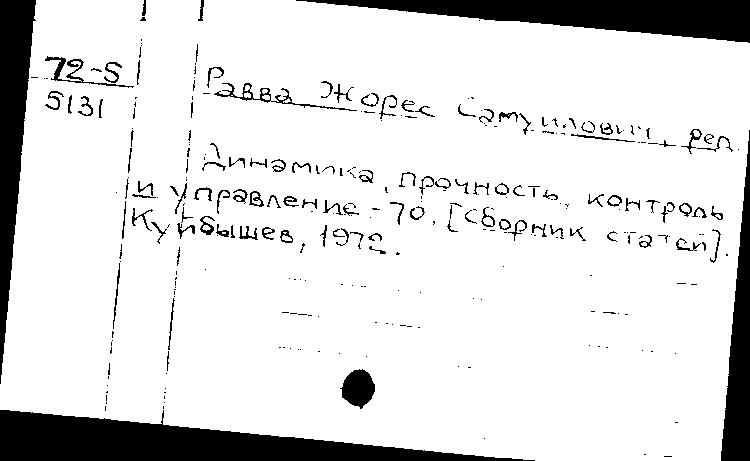 72-5
5131
Равва Жорес Самуилович, ред.
Динамика, прочность, контроль
и управление - 70. [Сборник статей].
Куйбышев, 1972.